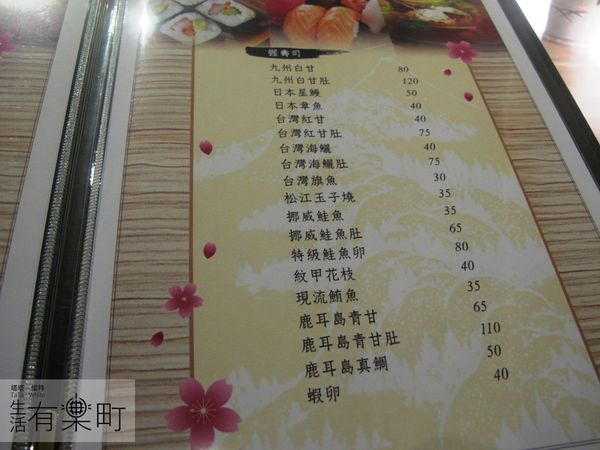 握壽司
九州白甘 80
九州白甘肚 120
日本星鰻 50
日本章魚 40
台灣紅甘 40
台灣紅甘肚 75
台灣海鱺 40
台灣海鱺肚 75
台灣旗魚 30
松江玉子燒 35
挪威鮭魚 35
挪威鮭魚肚 65
特級鮭魚卵 80
紋甲花枝 40
現流鮪魚 35
鹿耳島青甘 65
鹿耳島青甘肚 110
鹿耳島真鯛 50
蝦卵 40
塔塔 懷特
TaTa White
生活有樂町